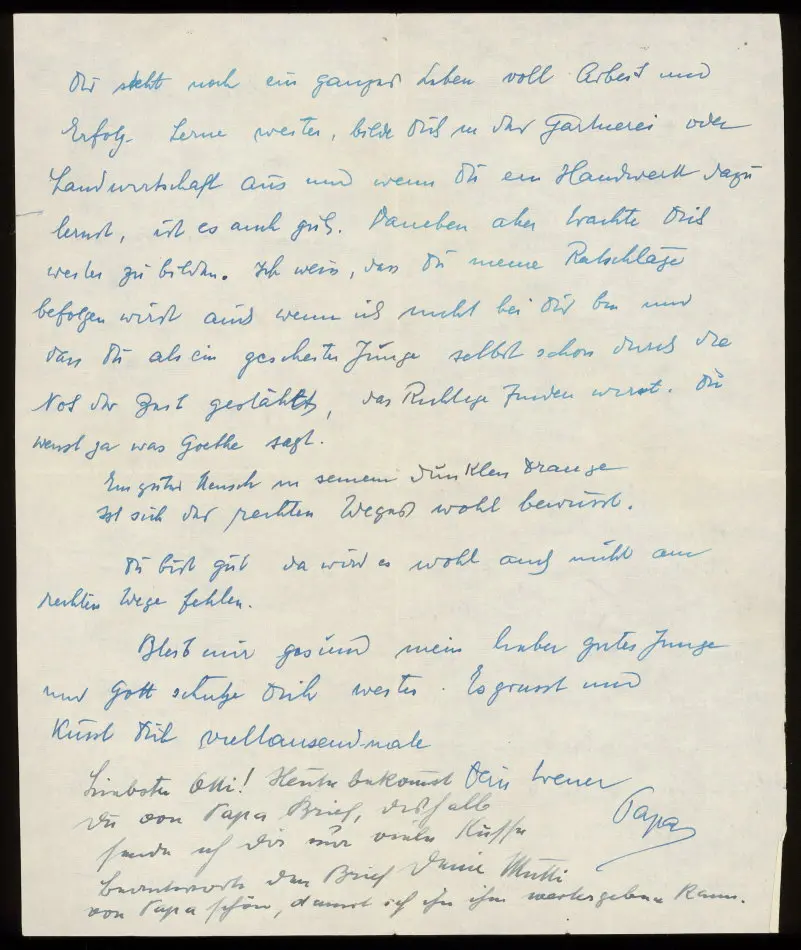 Dir steht noch ein ganzes Leben voll Arbeit und
Erfolg. Lerne weiter, bilde Dich in der Gärtnerei oder
Landwirtschaft aus und wenn Du ein Handwerk dazu
lernst, ist es auch gut. Daneben aber trachte Dich
weiter zu bilden. Ich weiss, dass Du meine Ratschläge
befolgen wirst auch wenn ich nicht bei Dir bin und
dass Du als ein gescheiter Junge selbst schon durch die
Not der Zeit gestählt, das Richtige finden wirst. Du
weisst ja was Goethe sagt.
Ein guter Mensch in seinem dunklen Drange
Ist sich des rechten Weges wohl bewusst.
Du bist gut da wird es wohl auch nicht am
rechten Wege fehlen.
Bleib mir gesund mein lieber guter Junge
und Gott schütze Dich weiter. Es grüsst und
küsst Dich vieltausendmale
Dein treuer
Papa
Liebster Otti! Heute bekommst
Du von Papa Brief, deshalb
sende ich Dir nur viele Küsse
Deine Mutti
Beantworte den Brief
von Papa schön, damit ich ihn ihm weitergeben kann.